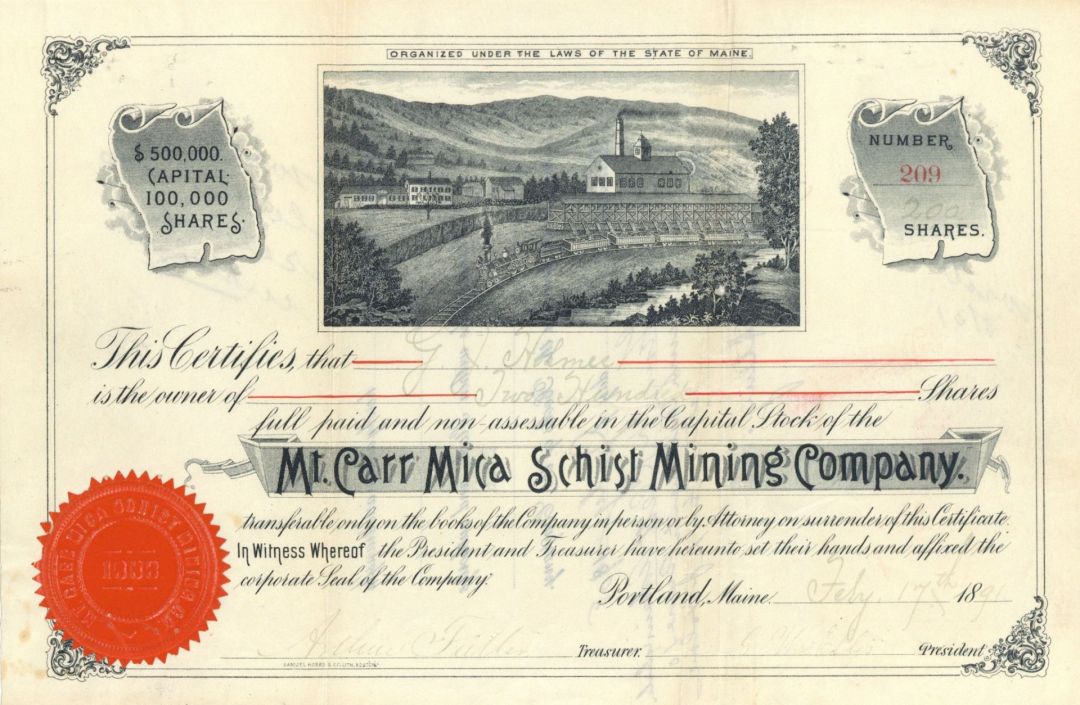 ORGANIZED UNDER THE LAWS OF THE STATE OF MAINE.
$500,000.
CAPITAL
100,000
SHARES.
NUMBER
209
200
SHARES.
This Certifies, that G. Holmes
is the owner of Two Hundred Shares
full paid and non-assessable in the Capital Stock of the
Mt. Carr Mica Schist Mining Company.
transferable only on the books of the Company in person or by Attorney on surrender of this Certificate.
In Witness Whereof the President and Treasurer have hereunto set their hands and affixed the
corporate Seal of the Company.
Portland, Maine. Feby. 17th 1891
Fuller Treasurer. President.
SAMUEL HOBBS & CO. LITH. BOSTON.
MT. CARR MICA SCHIST MINING CO.